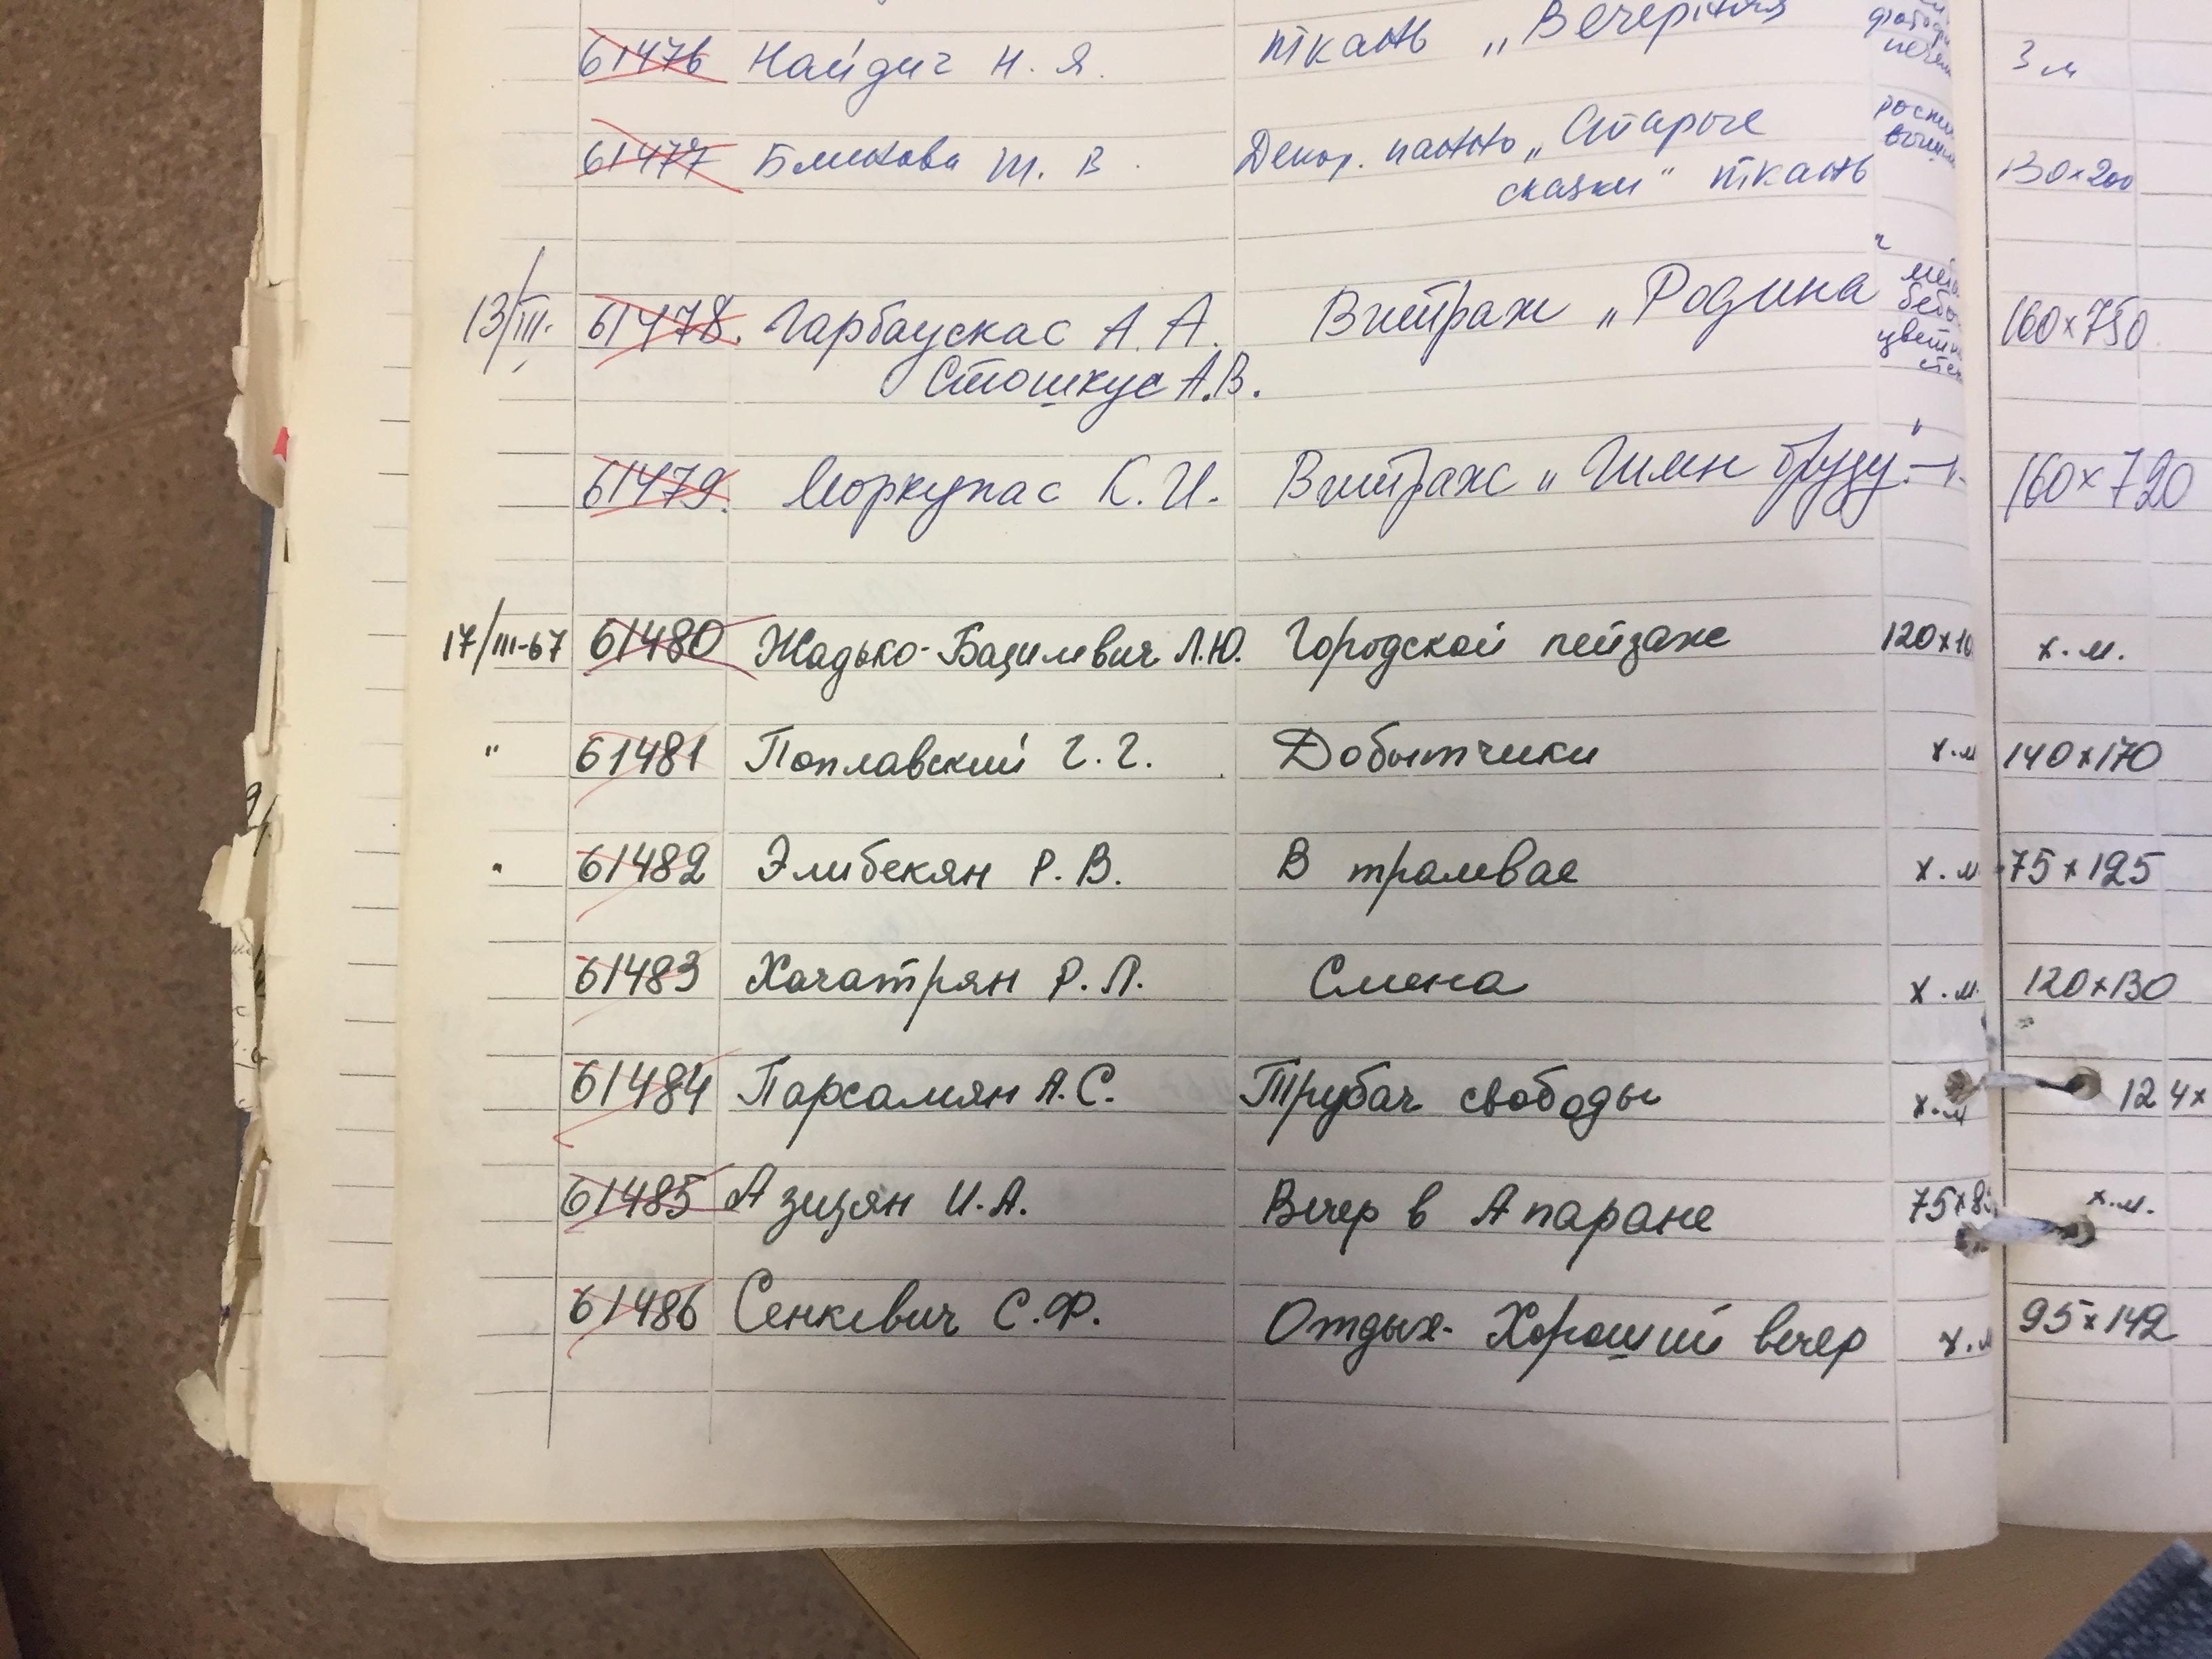 61476 Найдич Н. Я. ткань „Вечерняя 3 м
61477 Блинова Т. В. Декор. панно „Старые 130×200
сказки" ткань
13/III. 61478. Гарбаускас А. А. Витраж „Родина" 160×750
Стошкус А.В.
61479. Моркунас К. И. Витраж „Гимн труду" —"— 160×720
17/III-67 61480 Жадько-Базилевич Л.Ю. Городской пейзаж 120×10 х.м.
" 61481 Поплавский Г. Г. Добытчики х.м 140×170
" 61482 Элибекян Р. В. В трамвае х.м 75×125
61483 Хачатрян Р. Л. Смена х.м. 120×130
61484 Парсамян А.С. Трубач свободы х.м 124×
61485 Азизян И.А. Вечер в Апаране 75×8 х.м.
61486 Сенкевич С.Ф. Отдых. Хороший вечер х.м 95×142